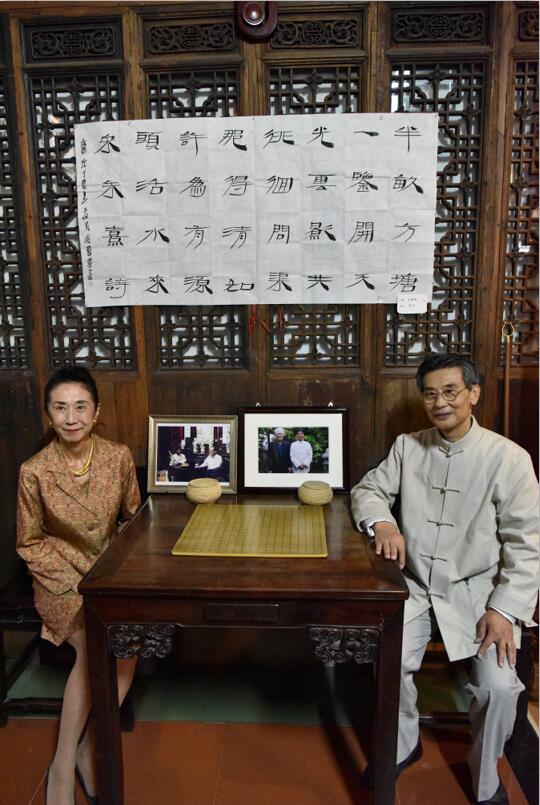 半畝方塘
一鑑開天
光雲影共
徘徊問渠
那得清如
許為有源
頭活水來
宋朱熹詩
丁酉年